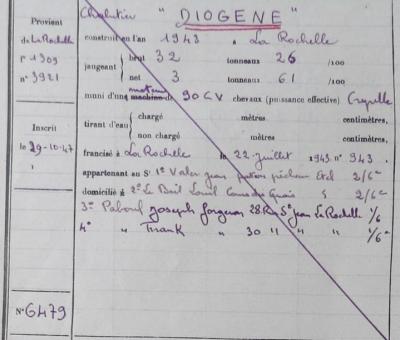 Chalutier " DIOGENE "
Provient
de La Rochelle
f° 1309
n° 3921
construit en l'an 1943 à La Rochelle
jaugeant brut 32 tonneaux 26 /100
net 3 tonneaux 61 /100
muni d'une machine de moteur 90 CV chevaux (puissance effective)
tirant d'eau chargé mètres centimètres,
non chargé mètres centimètres,
Inscrit
le 29-10-47
francisé à La Rochelle le 22 juillet 1943 n° 943
appartenant au Sr 1° patron pêcheur Etel 2/6e
domicilié à 2° Le Bail Louis Cours des Quais 2/6e
3° Joseph 28 Rue St Jean La Rochelle 1/6
4° " Frank " 30 " " " 1/6e
N° 6479